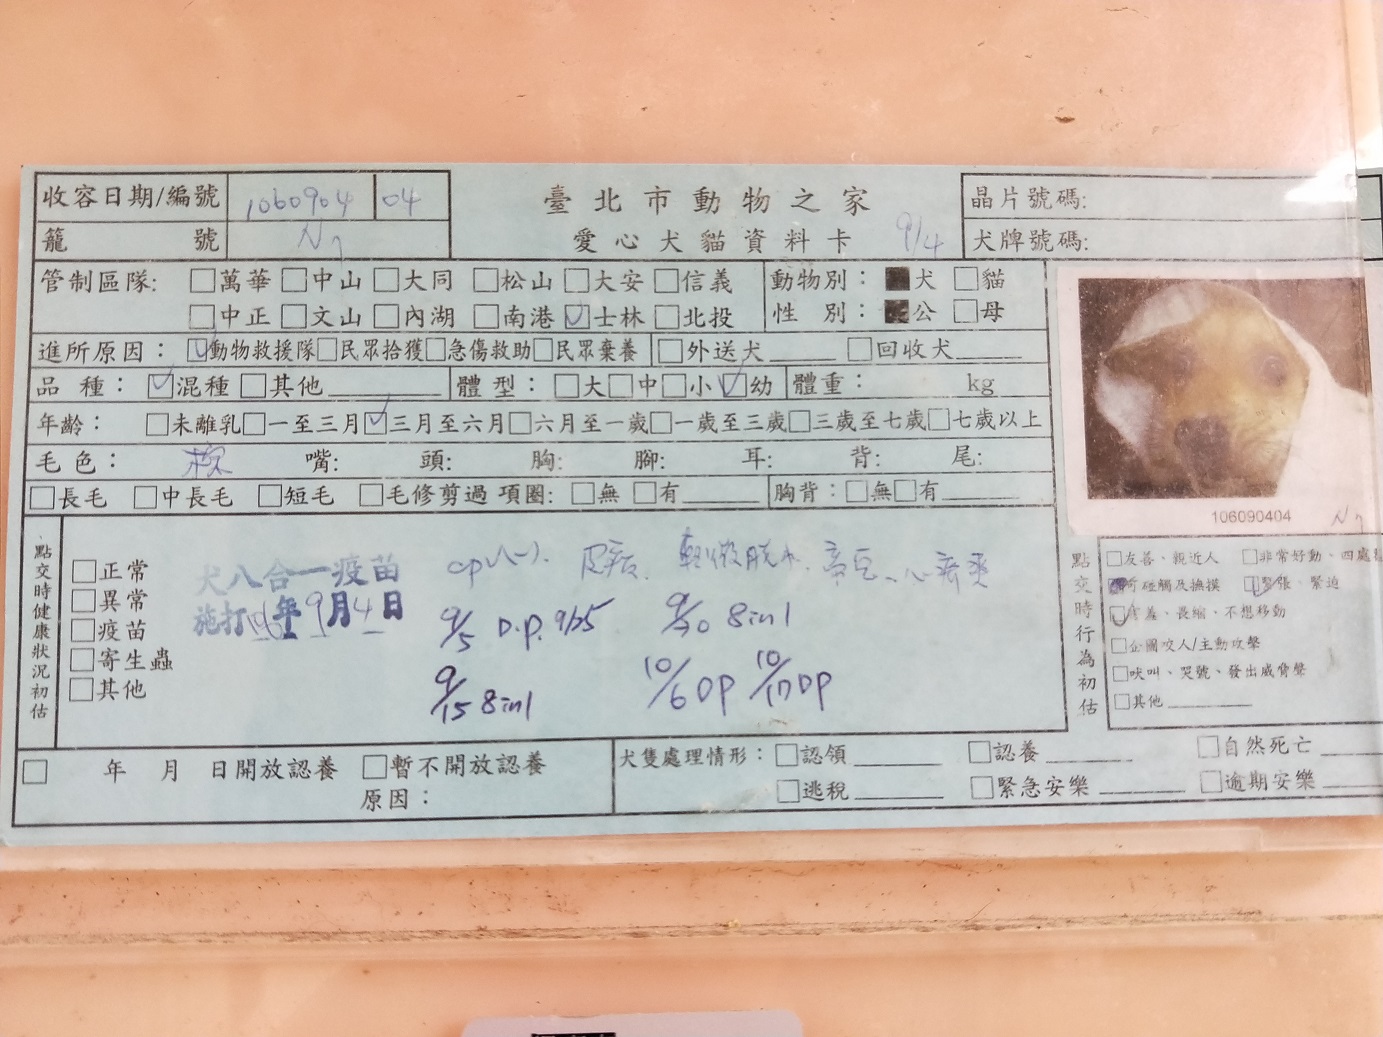 收容日期/編號 1060904 04
臺北市動物之家
晶片號碼:
籠號 N7
愛心犬貓資料卡 9/4
犬牌號碼:
管制區隊: □萬華 □中山 □大同 □松山 □大安 □信義
動物別: ■犬 □貓
□中正 □文山 □內湖 □南港 ☑士林 □北投
性別: ■公 □母
進所原因: ☑動物救援隊 □民眾拾獲 □急傷救助 □民眾棄養 □外送犬 □回收犬
品種: ☑混種 □其他 體型: □大 □中 □小 ☑幼 體重: kg
年齡: □未離乳 □一至三月 ☑三月至六月 □六月至一歲 □一歲至三歲 □三歲至七歲 □七歲以上
毛色: 棕 嘴: 頭: 胸: 腳: 耳: 背: 尾:
□長毛 □中長毛 □短毛 □毛修剪過 項圈: □無 □有 胸背: □無 □有
106090404 N7
點交時健康狀況初估
□正常
□異常
□疫苗
□寄生蟲
□其他
犬八合一疫苗
施打106年9月4日
cpv(-). 皮病. 輕微脫水.
9/5 D.P. 9/25 9/30 8in1
9/15 8in1 10/6 DP 10/17 DP
點交時行為初估
□友善、親近人 □非常好動、四處
可碰觸及撫摸 ☑緊張、緊迫
☑害羞、畏縮、不想移動
□企圖咬人/主動攻擊
□吠叫、哭號、發出威脅聲
□其他
□ 年 月 日開放認養 □暫不開放認養
原因:
犬隻處理情形: □認領 □認養 □自然死亡
□逃稅 □緊急安樂 □逾期安樂